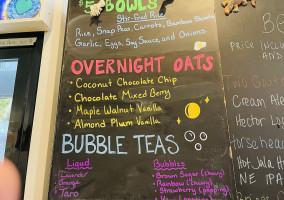 $5 BOWLS
Stir-Fried Rice
Rice, Snap Peas, Carrots, Bamboo Shoots,
Garlic, Eggs, Soy Sauce, and Onions
OVERNIGHT OATS
• Coconut Chocolate Chip
• Chocolate Mixed Berry
• Maple Walnut Vanilla
• Almond Plum Vanilla
BUBBLE TEAS
Liquid
Taro
Bubbles
Brown Sugar (Chewy)
Rainbow (Chewy)
Strawberry (popping)
PRICE INC
AN
Two
Cream Ale
Hector
Horsehead
Hot Jala H
NE IPA